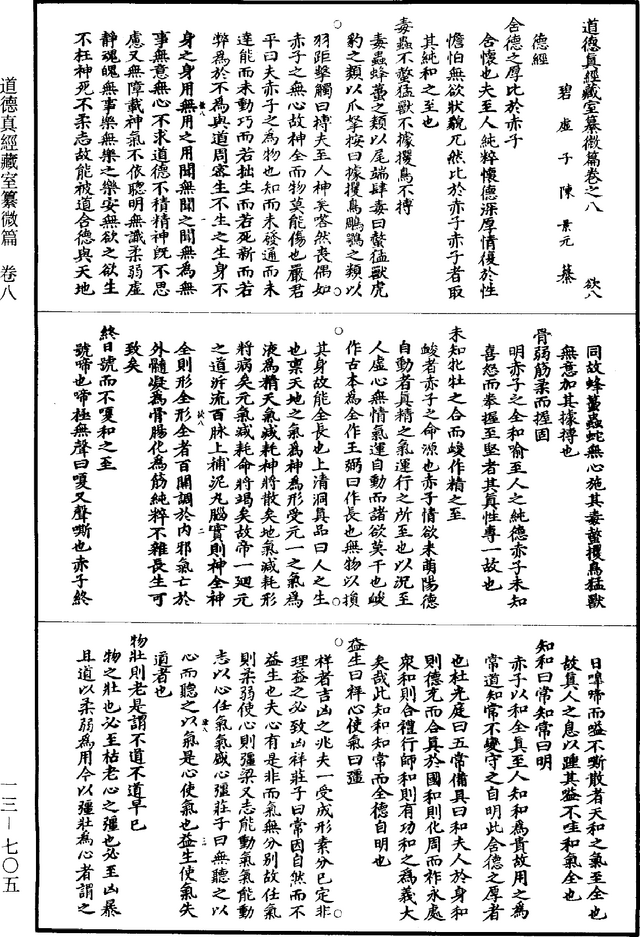 道德真經藏室纂微篇卷之八
碧虛子陳景元纂
欲八
德經
含德之厚比於赤子
含懷也夫至人純粹懷德深厚情復於性
憺怕無欲狀貌兀然比於赤子赤子者取
其純和之至也
毒蟲不螫猛獸不據攫鳥不搏
毒蟲蜂蠆之類以尾端肆毒曰螫猛獸虎
豹之類以爪拏按曰據攫鳥鵰鶚之類以
羽距擊觸曰搏夫至人神矣嗒然喪偶如
赤子之無心故神全而物莫能傷也嚴君
平曰夫赤子之為物也知而未發通而未
達能而未動巧而若拙生而若死新而若
弊為於不為與道周密生不生之生身不
身之身用無用之用聞無聞之聞無為無
事無意無心不求道德不積精神既不思
慮又無障載神氣不依聰明無識柔弱虛
靜魂魄無事樂無樂之樂安無欲之欲生
不枉神死不柔志故能被道合德與天地
同故蜂蠆蟲蛇無心施其毒螫攫鳥猛獸
無意加其據搏也
骨弱筋柔而握固
明赤子之全和喻至人之純德赤子未知
喜怒而拳握至堅者其真性專一故也
未知牝牡之合而峻作精之至
峻者赤子之命源也赤子情欲未萌陽德
自動者真精之氣運行之所至也以況至
人虛心無情氣運自動而諸欲莫干也峻
作古本為全作王弼曰作長也無物以損
其身故能全長也上清洞真品曰人之生
也稟天地之氣為神為形受元一之氣為
液為精天氣減耗神將散矣地氣減耗形
將病矣元氣減耗命將竭矣故帝一迴元
之道泝流百脉上補泥丸腦實則神全神
全則形全形全者百關調於內邪氣亡於
外髓凝為骨腸化為筋純粹不雜長生可
致矣
終日號而不嗄和之至
號啼也啼極無聲曰嗄又聲嘶也赤子終
日嘷啼而嗌不嘶散者天和之氣至全也
故真人之息以踵其嗌不哇和氣全也
知和曰常知常曰明
赤子以和全真至人知和為貴故用之為
常道知常不變守之自明此含德之厚者
也杜光庭曰五常備具曰和夫人於身和
則德充而合真於國和則化周而祚永處
衆和則合禮行師和則有功和之為義大
矣哉此知和知常而全德自明也
益生曰祥心使氣曰彊
祥者吉凶之兆夫一受成形素分已定非
理益之必致凶祥莊子曰常因自然而不
益生也夫心有是非而氣無分別故任氣
則柔弱使心則彊梁又志能動氣氣能動
志以心任氣氣感心彊莊子曰無聽之以
心而聽之以氣是心使氣也益生使氣失
道者也
物壯則老是謂不道不道早已
物之壯也必至枯老心之彊也必至凶暴
且道以柔弱為用今以彊壯為心者謂之
道德真經藏室纂微篇　卷八
一三—七〇五